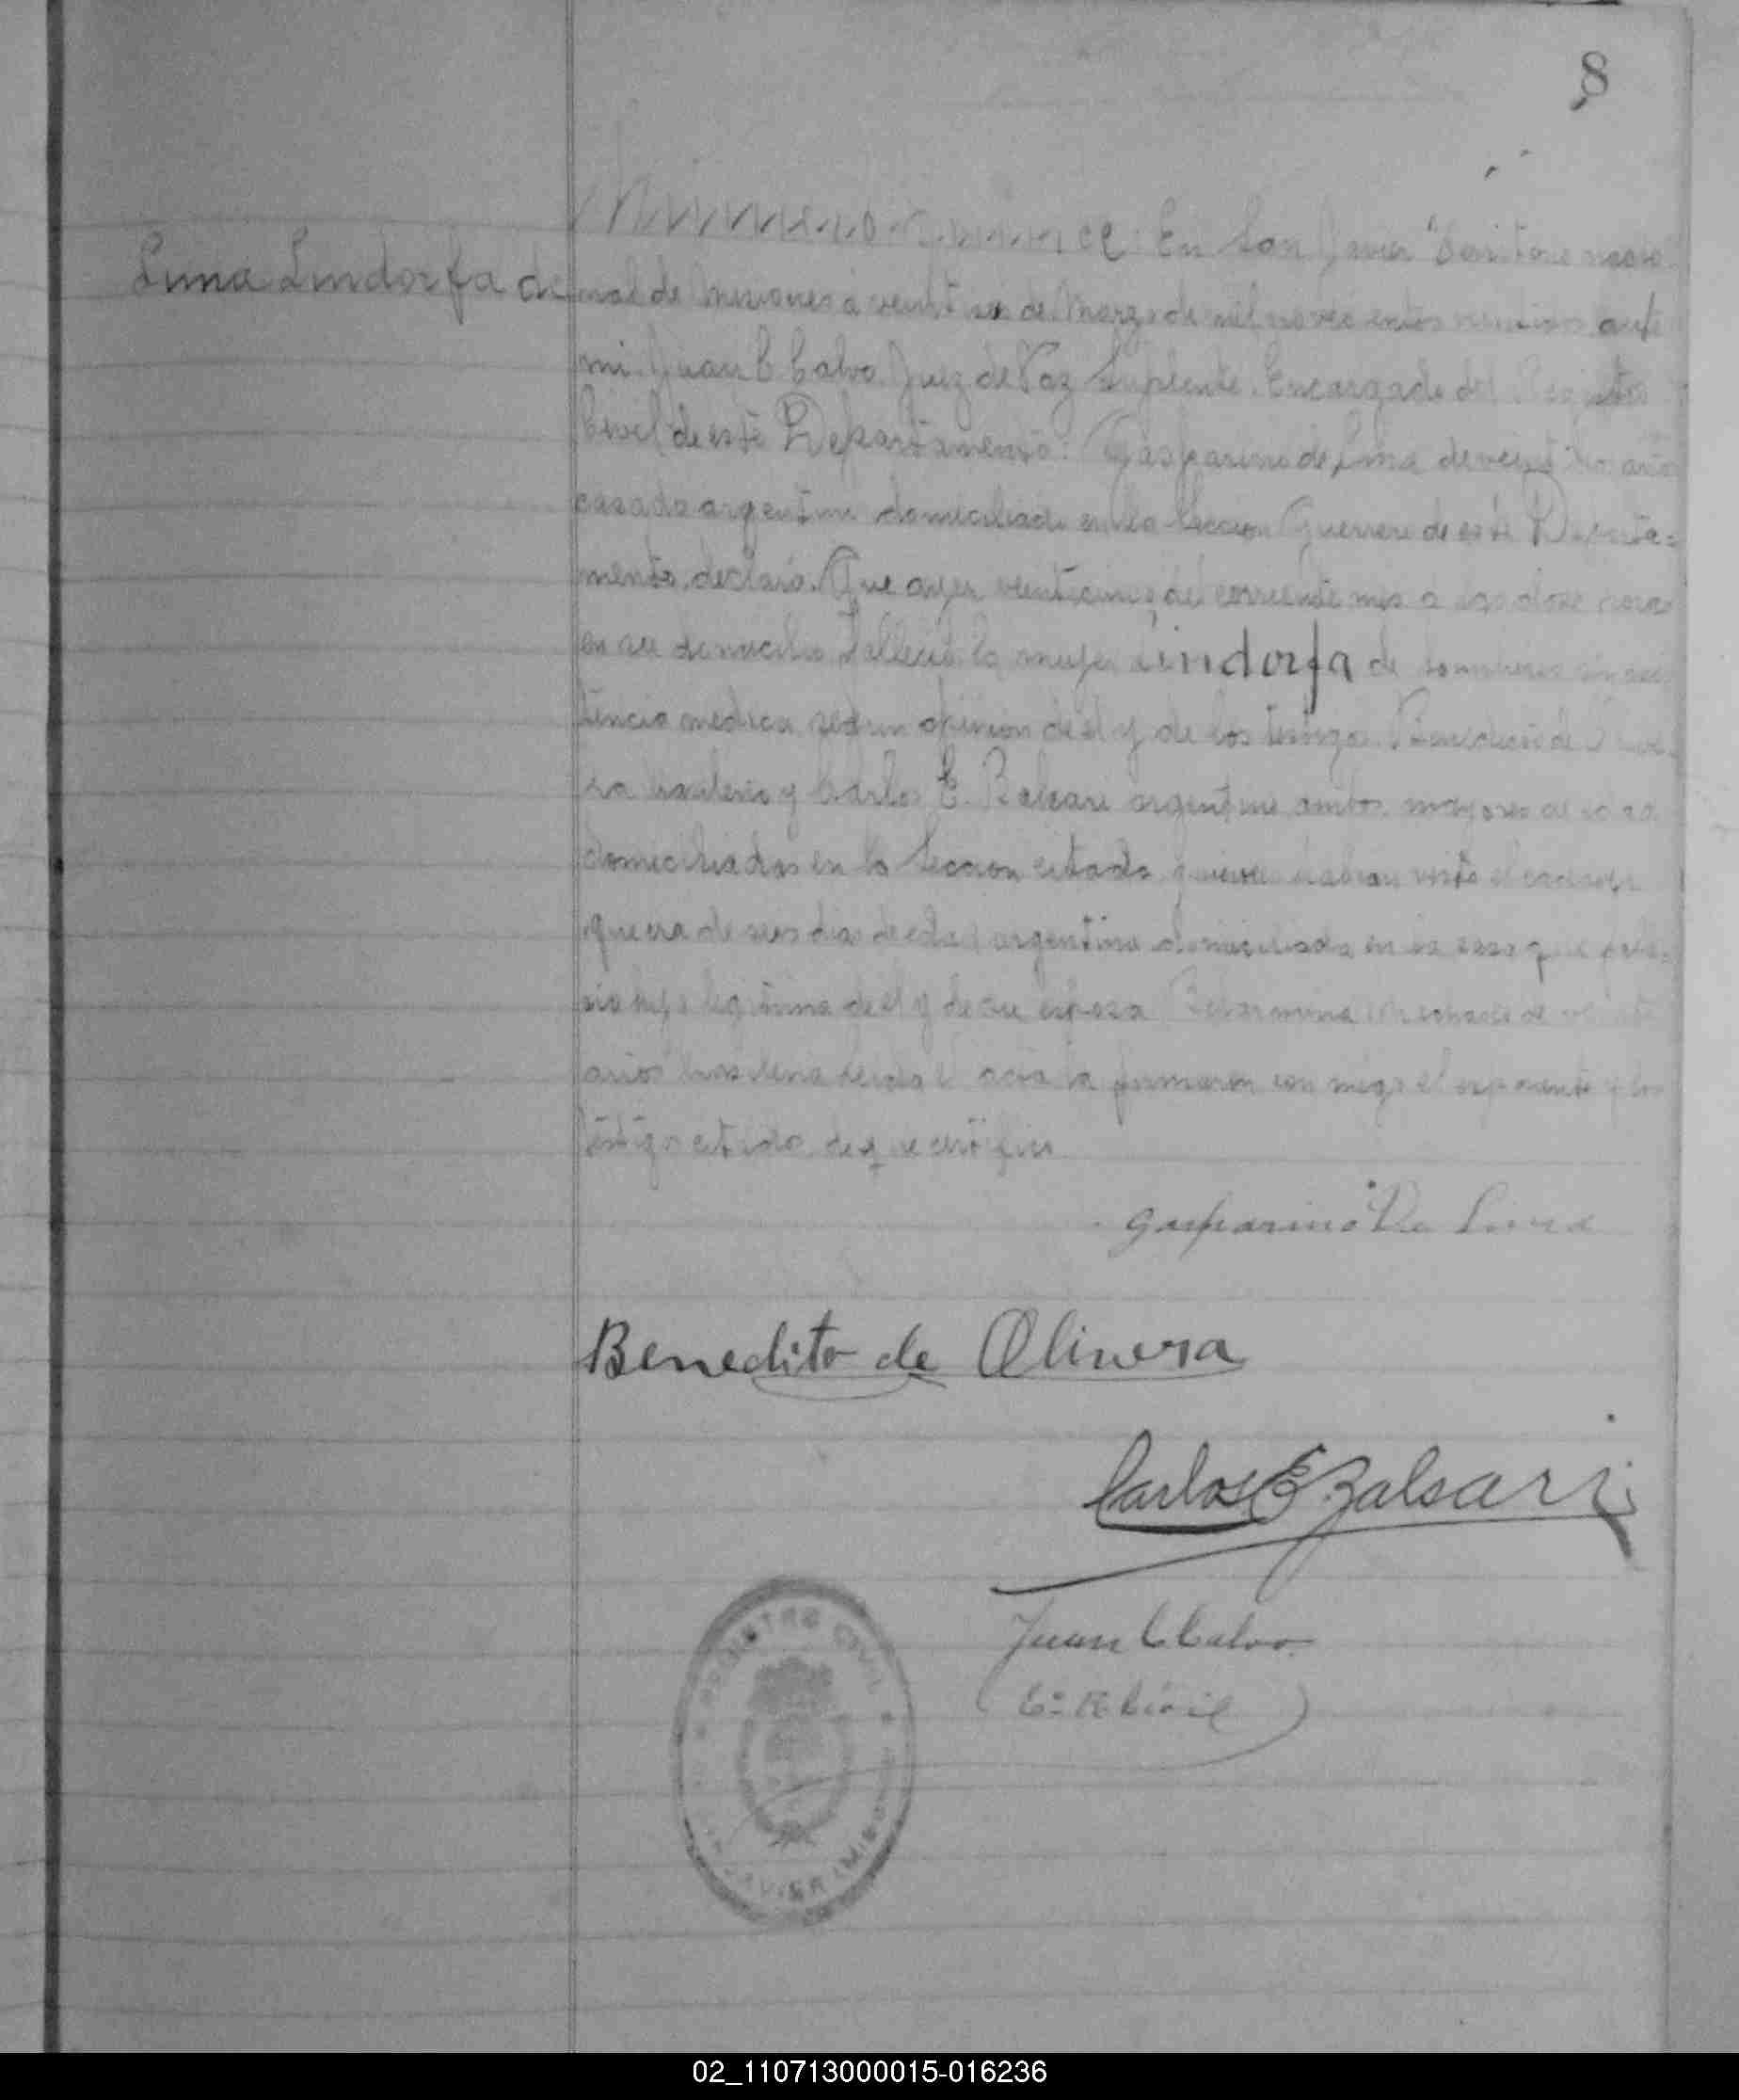 8
Numero quince En San Javier Territorio nacio
Lima Lindorfa de
nal de Misiones a de Marzo de mil novecientos ante
mi Juan C Calvo Juez de Paz Suplente Encargado del Registro
Civil de este Departamento: Gasparino de Lima de años
casado argentino domiciliado en la Seccion Guerrero de este Departa=
mento, declaró. Que ayer veinticinco del corriente mes a las doce horas
en su domicilio falleció la mujer Lindorfa de sin asis
tencia medica segun opinion de el y de los testigos Benedicto de Olive
ra brasilero y Carlos E. argentino ambos mayores de edad
domiciliados en la Seccion citada quienes habian visto el cadaver
que era de seis dias de edad argentina domiciliada en la casa que falle
cio hija legitima de el y de su esposa de
años brasilera Leida el acta la firmaron con migo el exponente y los
testigos citados de que certifico
Gasparino De Lima
Benedito de Olivera
Carlos E Balsari
Juan C Calvo
REGISTRO CIVIL
JAVIER (MISIONES)
02_110713000015-016236